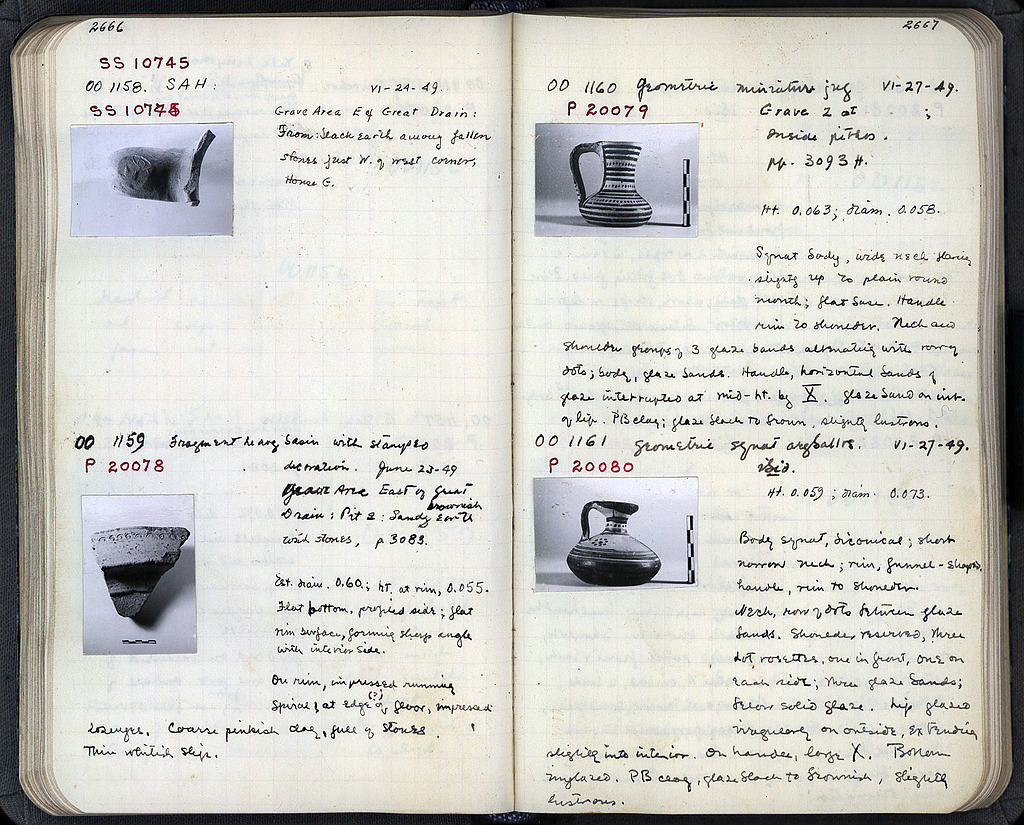 2666
SS 10745
OO 1158. SAH: VI-24-49.
SS 10745
Grave Area E of Great Drain:
From: black earth among fallen
stones just W. of west corner,
House G.
OO 1159 Fragment heavy basin with stamped
P 20078 decoration. June 23-49
Grave Area East of Great
Drain; Pit 2: Sandy brownish Earth
with stones, p 3083.
Est. diam. 0.60; ht. at rim, 0.055.
Flat bottom, profiled side; flat
rim surface, forming sharp angle
with interior side.
On rim, impressed running
spiral; at edge of (?) floor, impressed
lozenges. Coarse pinkish clay, full of stones
Thin whitish slip.
2667
OO 1160 Geometric miniature jug VI-27-49.
P 20079 Grave 2 at ;
inside pithos.
pp. 3093 ff.
Ht. 0.063; diam. 0.058.
Squat body, wide neck flaring
slightly up to plain round
mouth; flat base. Handle
rim to shoulder. Neck and
shoulder groups of 3 glaze bands alternating with row of
dots; body, glaze bands. Handle, horizontal bands of
glaze interrupted at mid-ht. by X. glaze band on int.
of lip. PB clay; glaze black to brown, slightly lustrous.
OO 1161 Geometric squat aryballos. VI-27-49.
P 20080 ibid.
Ht. 0.059; diam. 0.073.
Body squat, biconical; short
narrow neck; rim, funnel-shaped,
handle, rim to shoulder.
Neck, row of dots between glaze
bands. Shoulder reserved, three
dot rosettes, one in front, one on
each side; three glaze bands;
below solid glaze. Lip glazed
irregularly on outside, extending
slightly into interior. On handle, large X. Bottom
unglazed. PB clay, glaze black to brownish, slightly
lustrous.